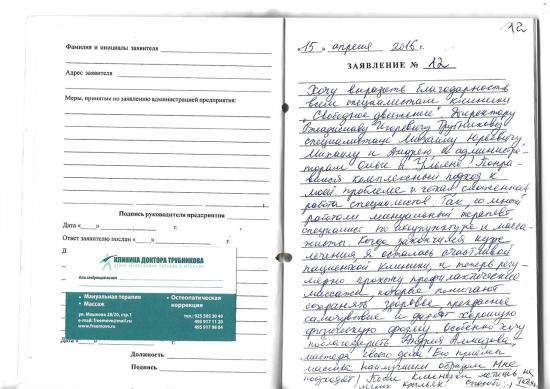 Фамилия и инициалы заявителя
Адрес заявителя
Меры, принятые по заявлению администрацией предприятия:
Подпись руководителя предприятия
Дата «___»
Ответ заявителю послан «___»
КЛИНИКА ДОКТОРА ТРУБНИКОВА
ЦЕНТР МАНУАЛЬНОЙ ТЕРАПИИ И МАССАЖА
• Мануальная терапия
• Массаж
• Остеопатическая
коррекция
Должность
Подпись
12
«15» апреля 2016 г.
ЗАЯВЛЕНИЕ № 12
Хочу выразить благодарность
всем специалистам клиники
"Свободное движение". Директору
Владиславу Игоревичу Трубникову
специалистам Михаилу Юрьевичу,
Михаилу и Андрею и администра-
торам Ольге и Ульяне! Понра-
вился комплексный подход к
моей проблеме и такая слаженная
работа специалистов. Так, со мной
работали мануальный терапевт,
специалист по акупунктуре и масса-
жисты. Когда закончился курс
лечения я осталась счастливой
пациенткой клиники и теперь регу-
лярно прохожу профилактические
массажи, которые помогают
сохранять здоровье, прекрасное
самочувствие и дарят хорошую
физическую форму. Особенно хочу
поблагодарить Андрея Алмазова,
мастера своего дела! Его приёмы
массажа наилучшим образом мне
подходят!